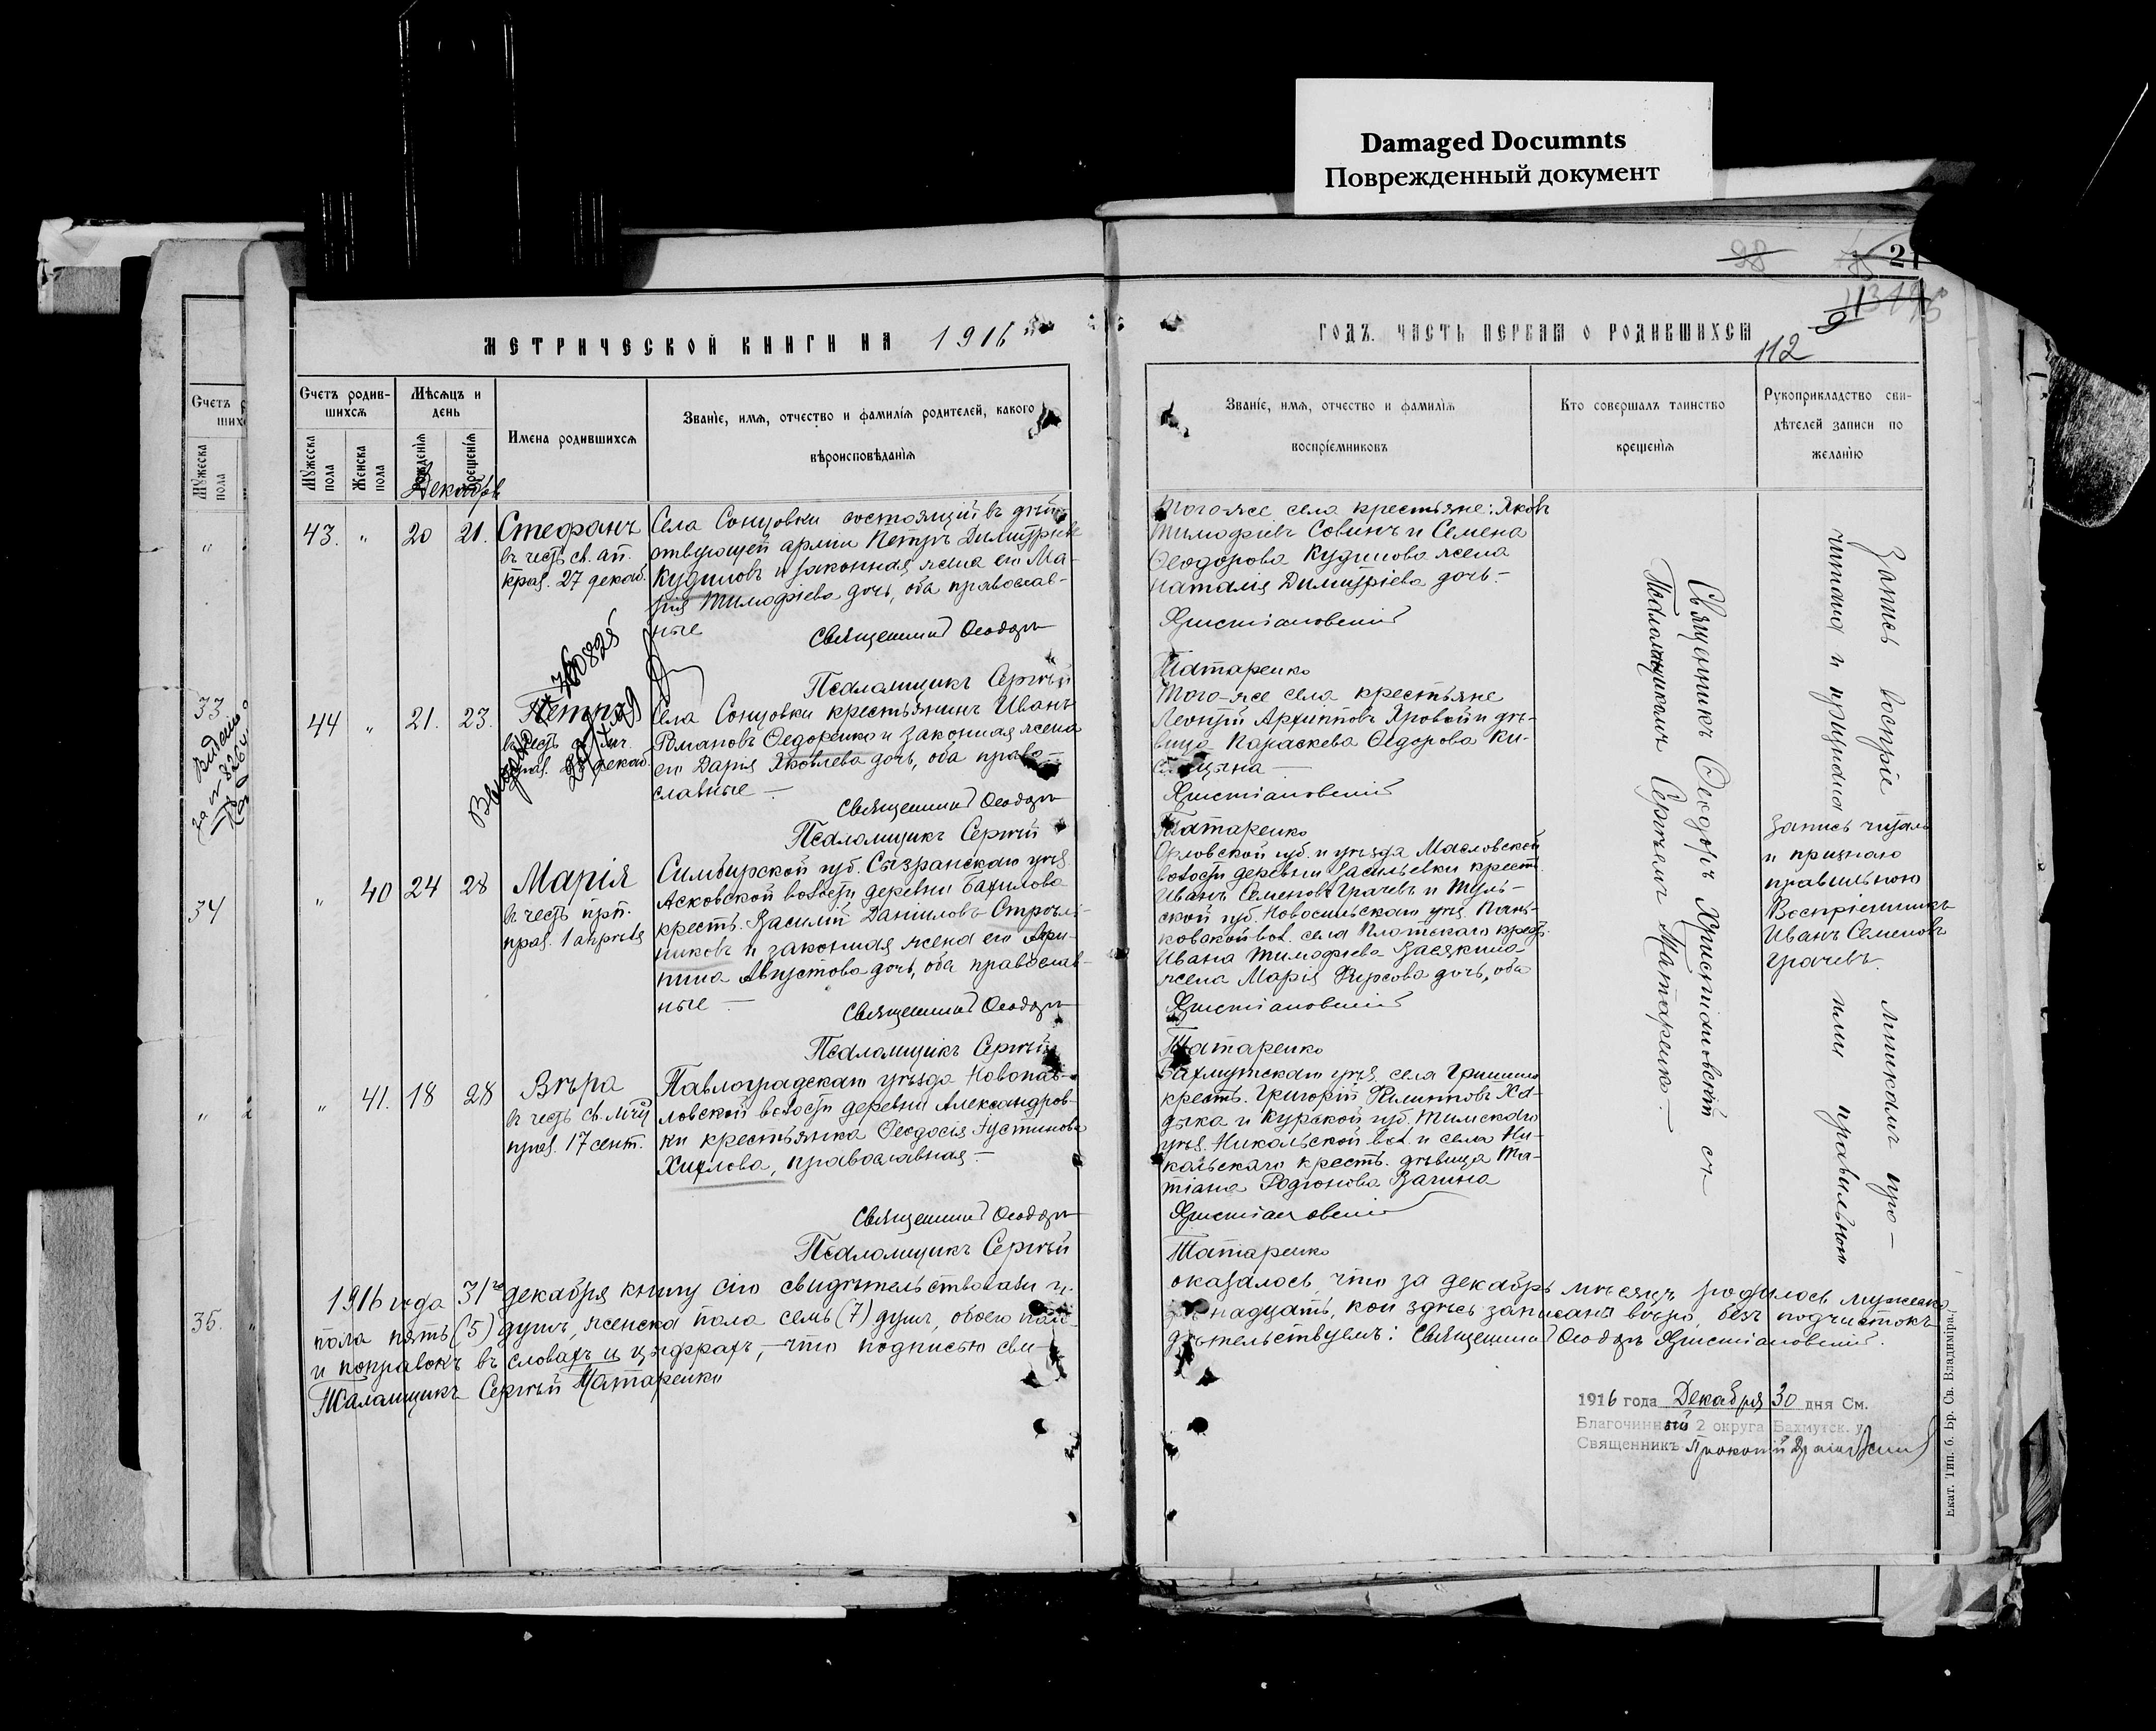 Damaged Documnts
Поврежденный документ
28
21
112
МЕТРИЧЕСКОЙ КНИГИ НА 1916
ГОДЪ. ЧАСТЬ ПЕРВАЯ О РОДИВШИХСЯ
Счетъ родив-
шихся
Мужеска
пола
Женска
пола
Мѣсяцъ и
день
рожденія
крещенія
Имена родившихся
Званіе, имя, отчество и фамилія родителей, какого
вѣроисповѣданія
Званіе, имя, отчество и фамилія
воспріемниковъ
Кто совершалъ таинство
крещенія
Рукоприкладство сви-
дѣтелей записи по
желанію
Декабрь
43. " 20 21.
Стефанъ
въ честь св. ап.
праз. 27 декаб.
Села Сонцовки состоящій въ дѣй-
ствующей арміи Петръ Димитріевъ
Кудиловъ и законная жена его Ма-
рія Тимофіева дочь, оба православ-
ные
Священникъ Ѳеодоръ
Псаломщикъ Сергѣй
Того-же села крестьяне: Яковъ
Тимофіевъ Совинъ и Семена
Ѳеодорова Кудинова жена
Наталія Димитріева дочь.
Христіановскій
Татаренко
44 " 21. 23.
Петръ
Села Сонцовки крестьянинъ Иванъ
Романовъ Ѳедоренко и законная жена
его Дарія Яковлева дочь, оба право-
славные
Священникъ Ѳеодоръ
Псаломщикъ Сергѣй
Того-же села крестьяне
Леонтій Архипповъ Яровой и дѣ-
вица Параскева Ѳедорова
Христіановскій
Татаренко
" 40 24 28
Марія
въ честь прп.
праз. 1 апрѣля
Симбирской губ. Сызранскаго уѣз.
Асковской волости деревни Бахилова
крест. Василій Даниловъ
никовъ и законная жена его Агри-
пина Августова дочь, оба православ-
ные
Священникъ Ѳеодоръ
Псаломщикъ Сергѣй
Орловской губ. и уѣзда Масловской
волости деревни Васильевки крест.
Иванъ Семеновъ Грачевъ и Туль-
ской губ. Новосильскаго уѣз. Пань-
ковской вол. села Платскаго крест.
Ивана Тимофіева Засѣкина
жена Марія Фирсова дочь, оба
Христіановскій
Татаренко
Запись читалъ
и признаю
правильною
Воспріемникъ
Иванъ Семеновъ
Грачевъ.
" 41. 18 28
Вѣра
въ честь св. мчц
праз. 17 сент.
Павлоградскаго уѣзда Новопав-
ловской волости деревни Александров-
ки крестьянка Ѳеодосія Іустинова
Хихлова, православная
Священникъ Ѳеодоръ
Псаломщикъ Сергѣй
Бахмутскаго уѣз. села Гришино
крест. Григорій Филипповъ
и Курской губ. Тимскаго
уѣз. Никольской вол. и села Ни-
кольскаго крест. дѣвица Та-
тіана Родіонова Вагина
Христіановскій
Татаренко
Священникъ Ѳеодоръ Христіановскій съ
Псаломщикомъ Сергѣемъ Татаренко.
Запись воспріемникамъ про-
читана и признана ими правильною
1916 года 31го декабря книгу сію свидѣтельствовали и
оказалось что за декабрь мѣсяцъ родилось мужеска
пола пять (5) душъ, женска пола семь (7) душъ, обоего пола
двѣнадцать, кои здѣсь записаны вѣрно, безъ подчистокъ
и поправокъ въ словахъ и цифрахъ, что подписью сви-
дѣтельствуемъ: Священникъ Ѳеодоръ Христіановскій.
Псаломщикъ Сергѣй Татаренко
1916 года Декабря 30 дня См.
Благочинный 2 округа Бахмутск. у.
Священникъ Прокопій
Екат. Тип. б. Бр. Св. Владиміра.
33
34
35.